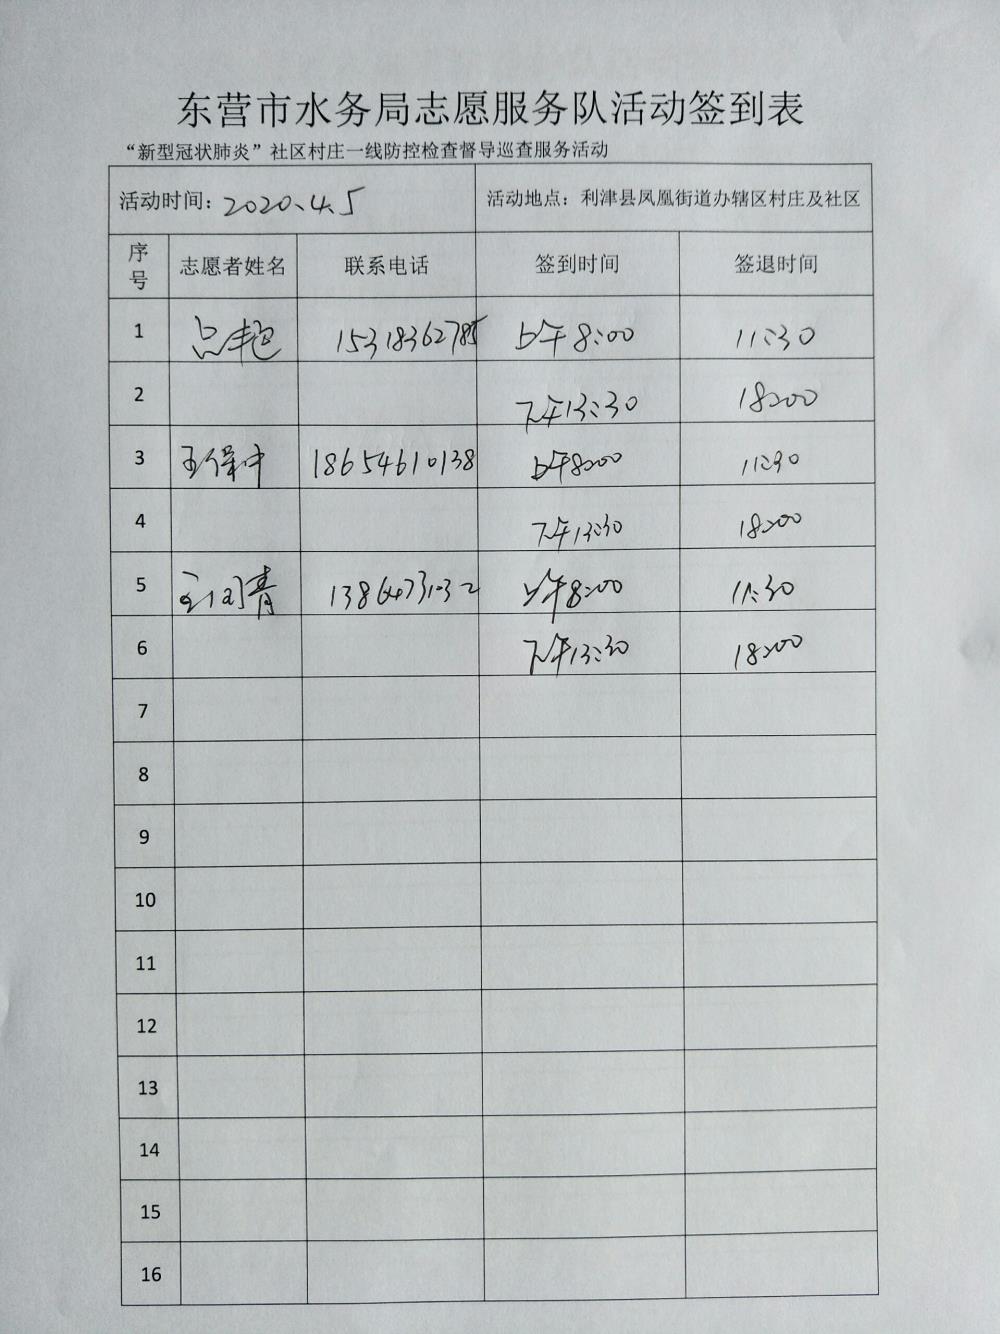 东营市水务局志愿服务队活动签到表
“新型冠状肺炎”社区村庄一线防控检查督导巡查服务活动
活动时间：2020.4.5 活动地点：利津县凤凰街道办辖区村庄及社区
序号 志愿者姓名 联系电话 签到时间 签退时间
1 15318362785 上午8:00 11:30
2 下午13:30 18:00
3 王保中 18654610138 上午8:00 11:30
4 下午13:30 18:00
5 上午8:00 11:30
6 下午13:30 18:00
7
8
9
10
11
12
13
14
15
16